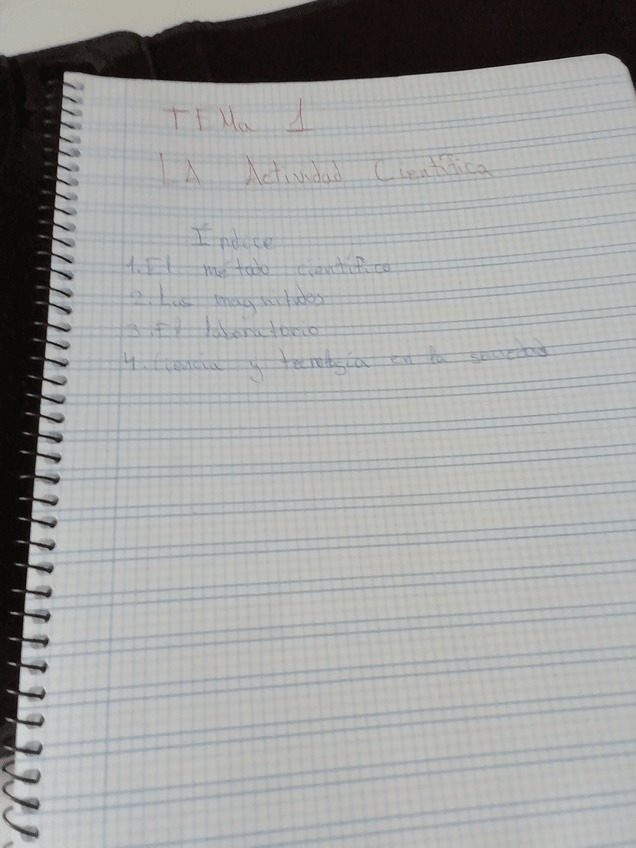 TEMa 1
LA Actividad Científica
Índice
1. El método científico
2. Las magnitudes
3. El laboratorio
4. Ciencia y tecnología en la sociedad